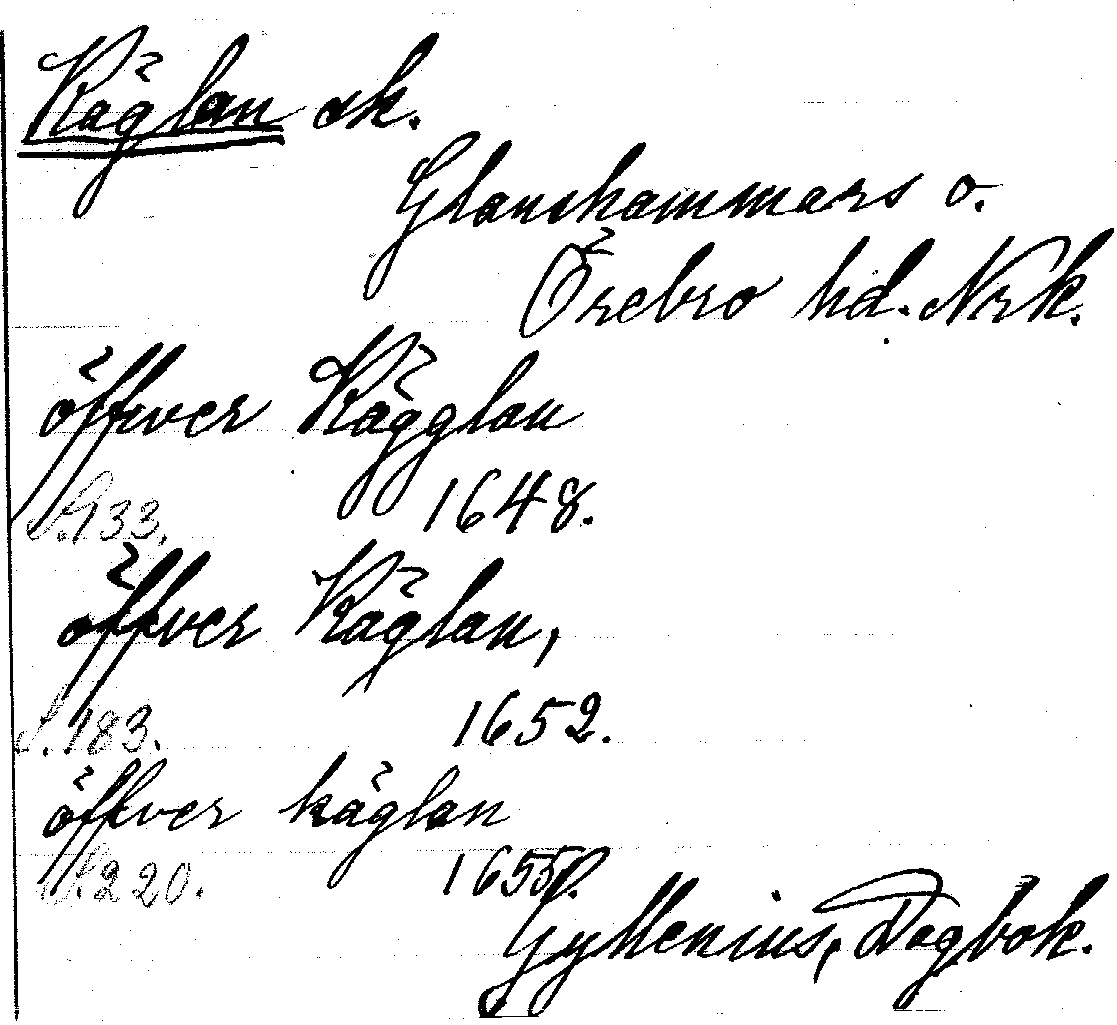 Käglan sk.
Glanshammars o.
Örebro hd. Nrk.
öffver Kägglan
S. 133. 1648.
öffver Käglan,
S. 183. 1652.
öffver käglan
S. 220. 1655.
Gyllenius, Dagbok.